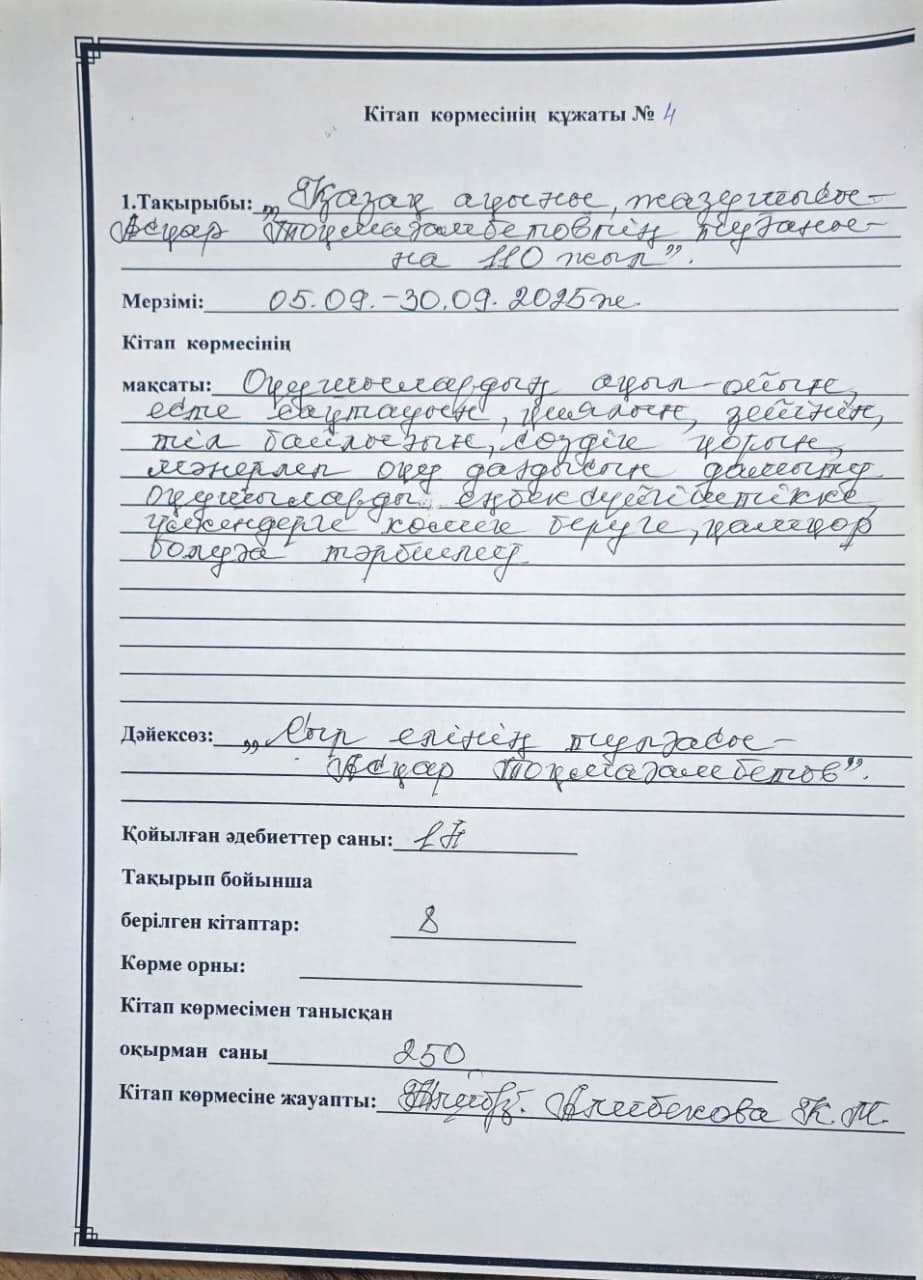 Кітап көрмесінің құжаты № 4
1.Тақырыбы: „Қазақ ақыны, жазушысы-
Асқар Тоқмағамбетовтің туғаны-
на 110 жыл”.
Мерзімі: 05.09.-30.09. 2025ж.
Кітап көрмесінің
мақсаты: Оқушылардың ақыл-ойын,
есте сақтауын, қиялын, зейінін,
тіл байлығын, сөздік қорын,
мәнерлеп оқу дағдысын дамыту
Оқушыларды еңбексүйгіштікке,
үлкендерге көмек беруге, қамқор
болуға тәрбиелеу
Дәйексөз: „Сыр елінің тұлғасы-
Асқар Тоқмағамбетов”.
Қойылған әдебиеттер саны:
Тақырып бойынша
берілген кітаптар: 8
Көрме орны:
Кітап көрмесімен танысқан
оқырман саны 250
Кітап көрмесіне жауапты: Алибекова К.М.